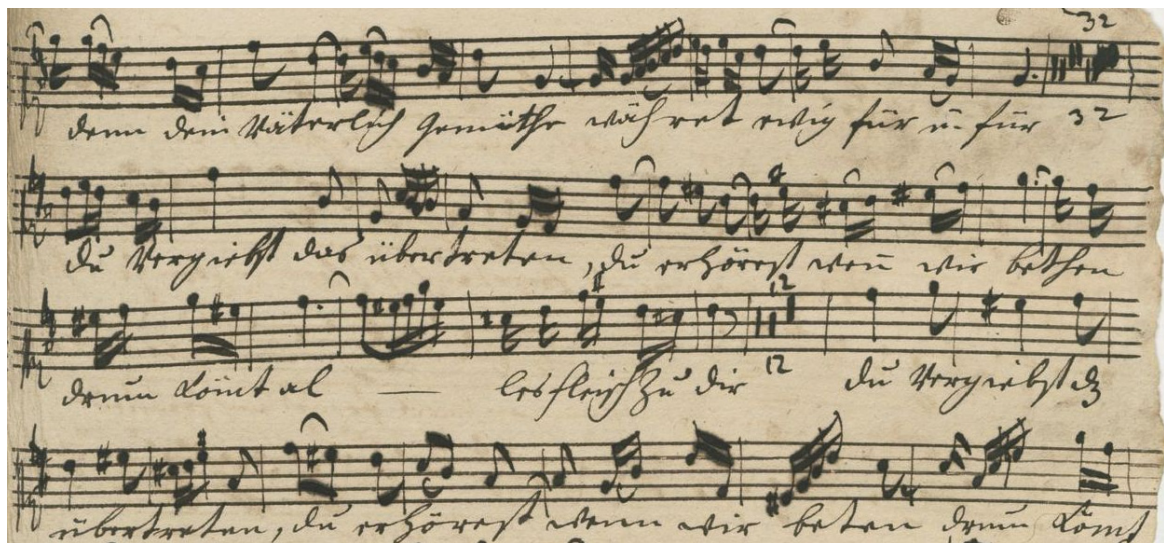 32
denn dein Väterlich Gemüthe währet ewig für u. für 32
du Vergiebst das übertreten, du erhörest wen̄ wir bethen
12
drum kom̄t al — les fleisch zu dir 12 du Vergiebst dz
übertreten, du erhörest wenn wir beten drum kom̄t